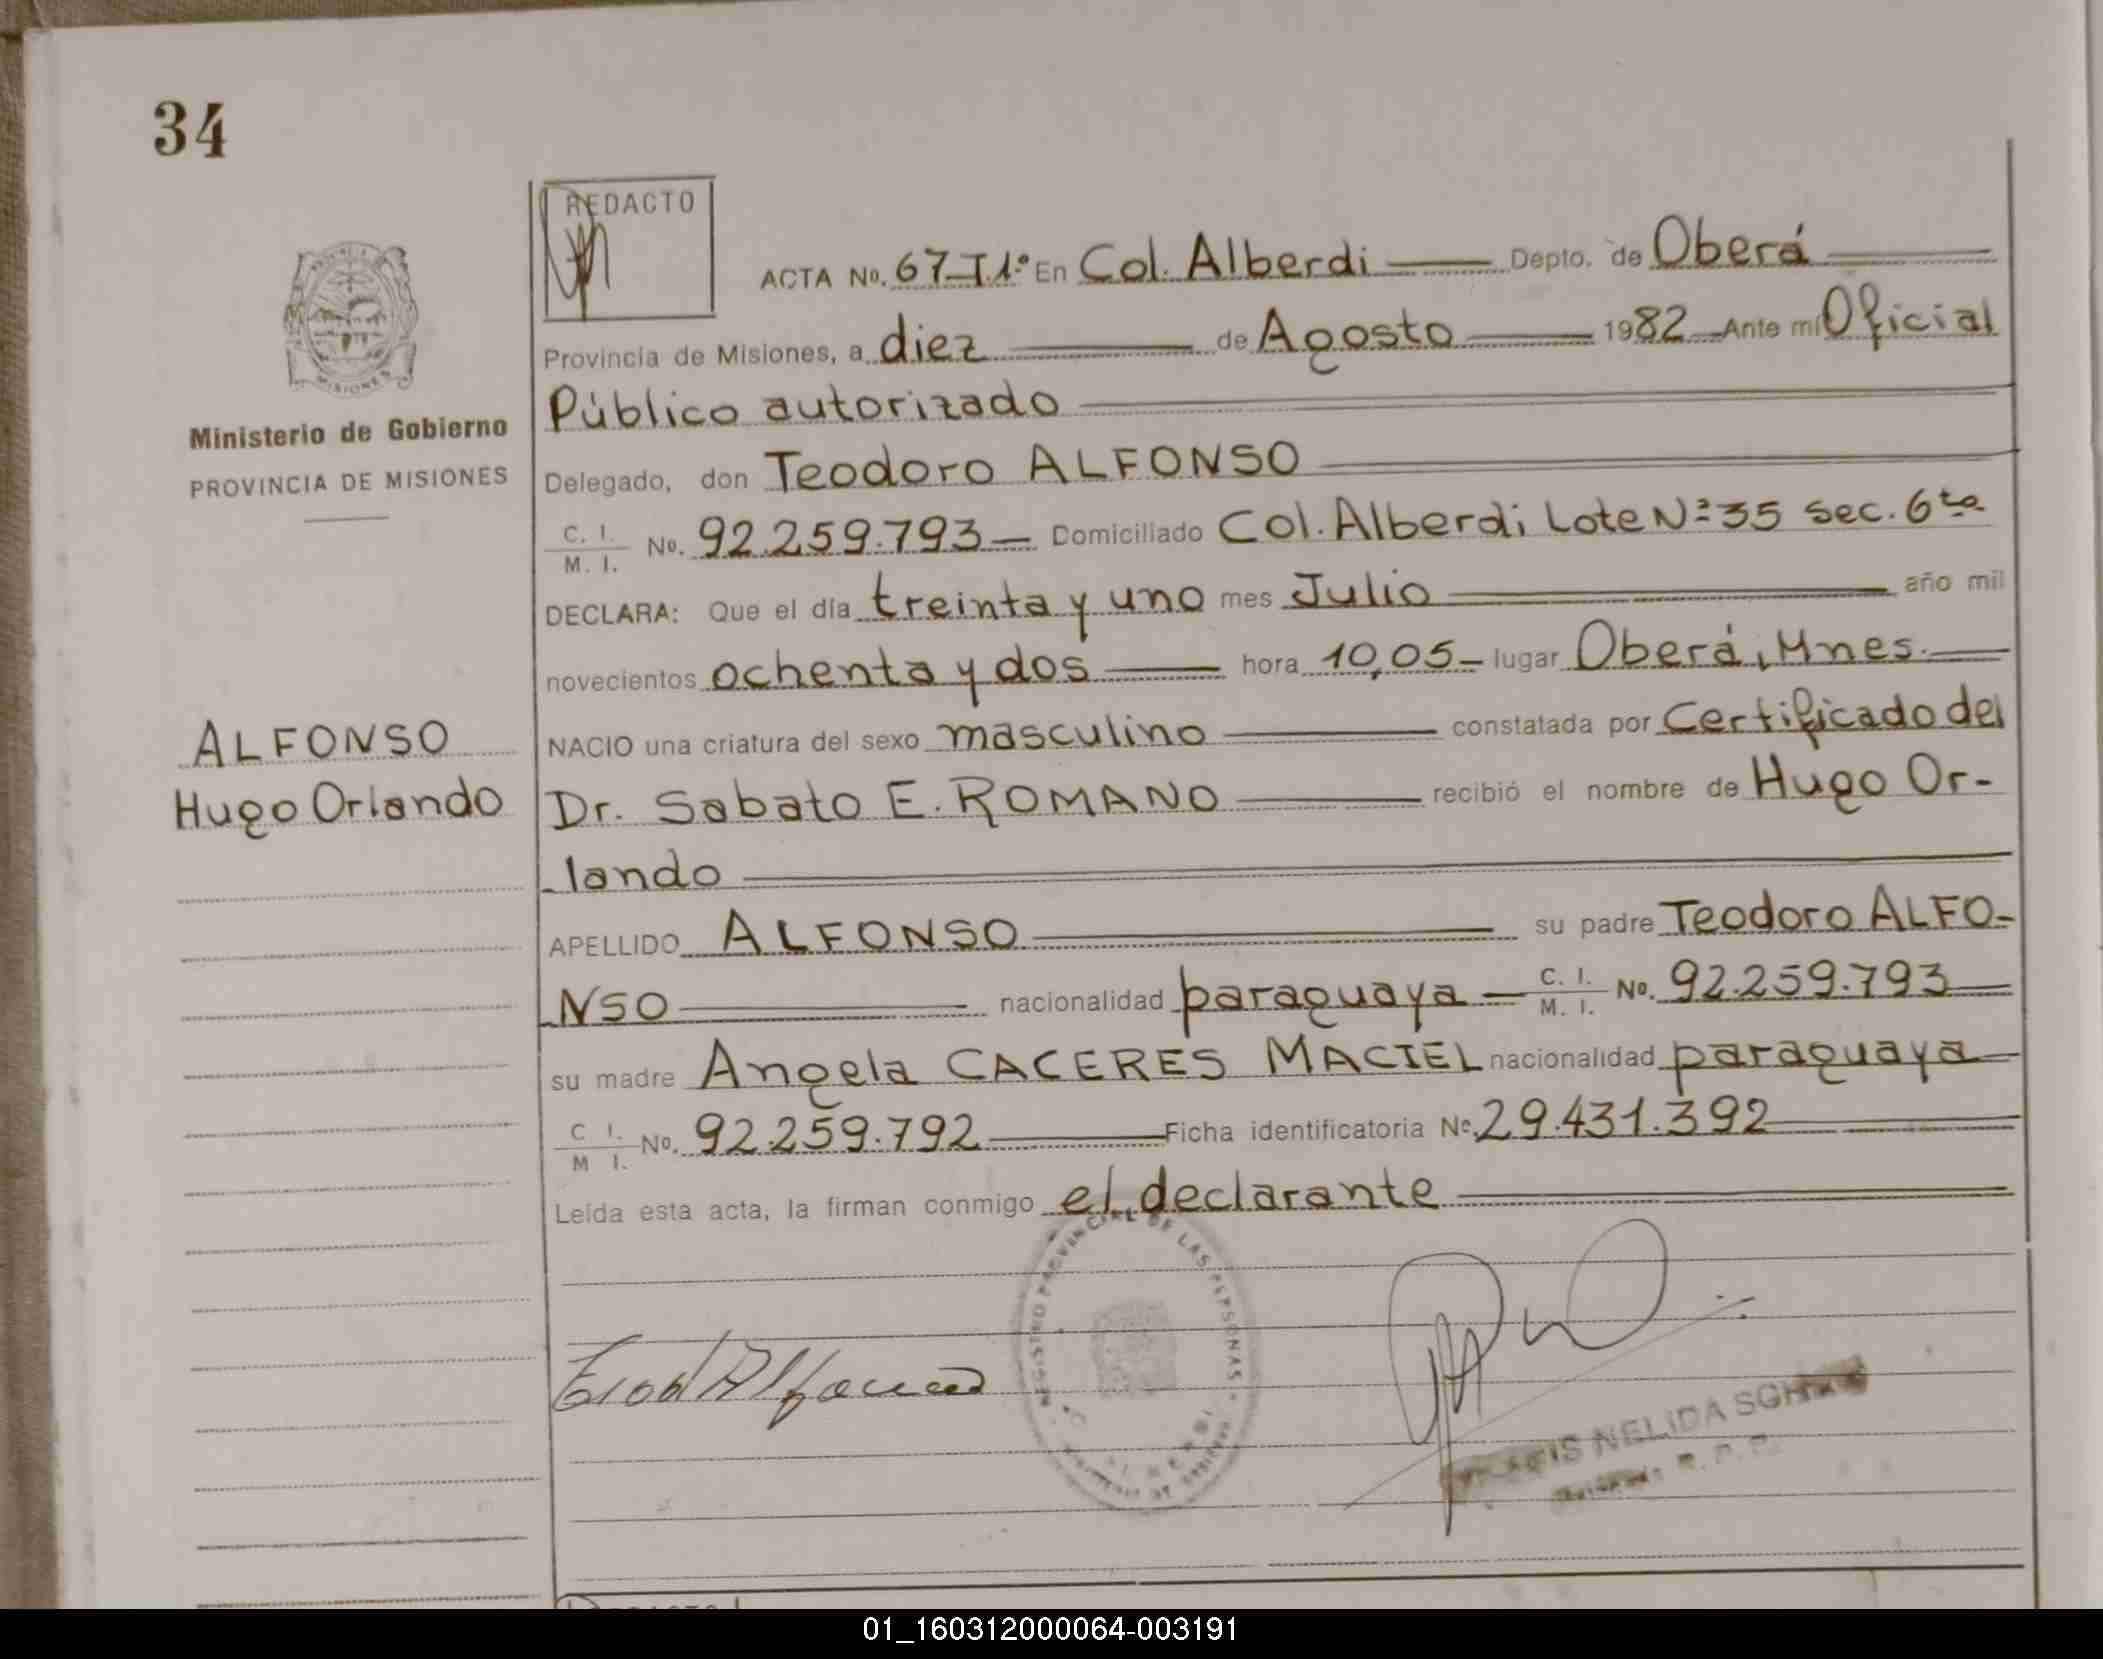 34
REDACTO
ACTA No. 67-T1º En Col. Alberdi Depto. de Oberá
Provincia de Misiones, a diez de Agosto 1982 Ante mi Oficial
Público autorizado
Delegado, don Teodoro ALFONSO
C. I. / M. I. No. 92.259.793 Domiciliado Col. Alberdi Lote Nº 35 sec. 6ta
DECLARA: Que el día treinta y uno mes Julio año mil
novecientos ochenta y dos hora 10,05 lugar Oberá, Mnes.
NACIO una criatura del sexo masculino constatada por Certificado del
Dr. Sabato E. ROMANO recibió el nombre de Hugo Or-
lando
APELLIDO ALFONSO su padre Teodoro ALFO-
NSO nacionalidad paraguaya C. I. / M. I. No. 92.259.793
su madre Angela CACERES MACIEL nacionalidad paraguaya
C I. / M I. No. 92.259.792 Ficha identificatoria Nº 29.431.392
Leída esta acta, la firman conmigo el declarante
PROVINCIA
MISIONES
Ministerio de Gobierno
PROVINCIA DE MISIONES
ALFONSO
Hugo Orlando
REGISTRO PROVINCIAL DE LAS PERSONAS
NELIDA
01_160312000064-003191